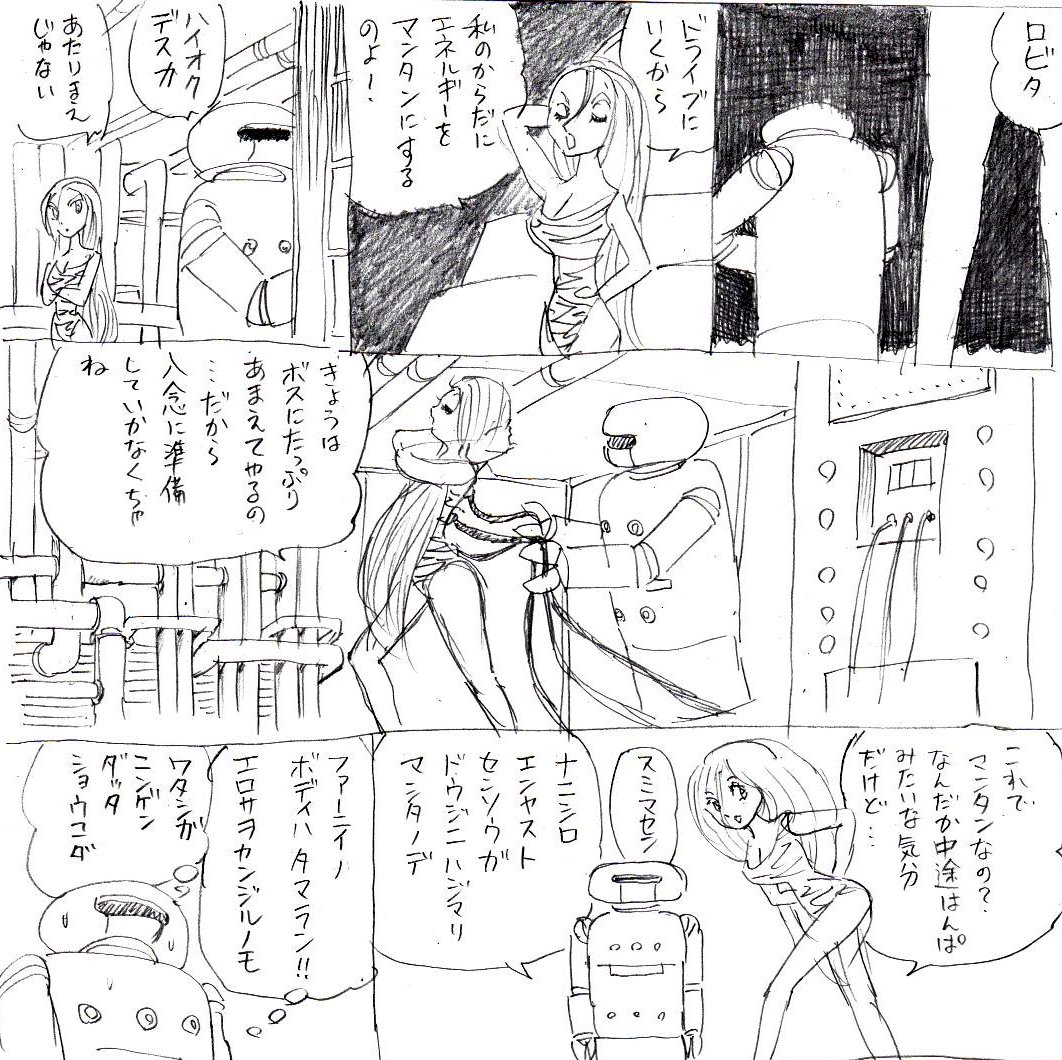 ロビタ
ドライブに
いくから
私のからだに
エネルギーを
マンタンにする
のよ!
ハイオク
デスカ
あたりまえ
じゃない
きょうは
ボスにたっぷり
あまえてやるの
…だから
入念に準備
していかなくちゃ
ね
これで
マンタンなの?
なんだか中途はんぱ
みたいな気分
だけど…
スミマセン
ナニシロ
エンヤスト
センソウガ
ドウジニハジマリ
マシタノデ
ファーニィノ
ボディハタマラン!!
エロサヲカンジルノモ
ワタシガ
ニンゲン
ダッタ
ショウコダ